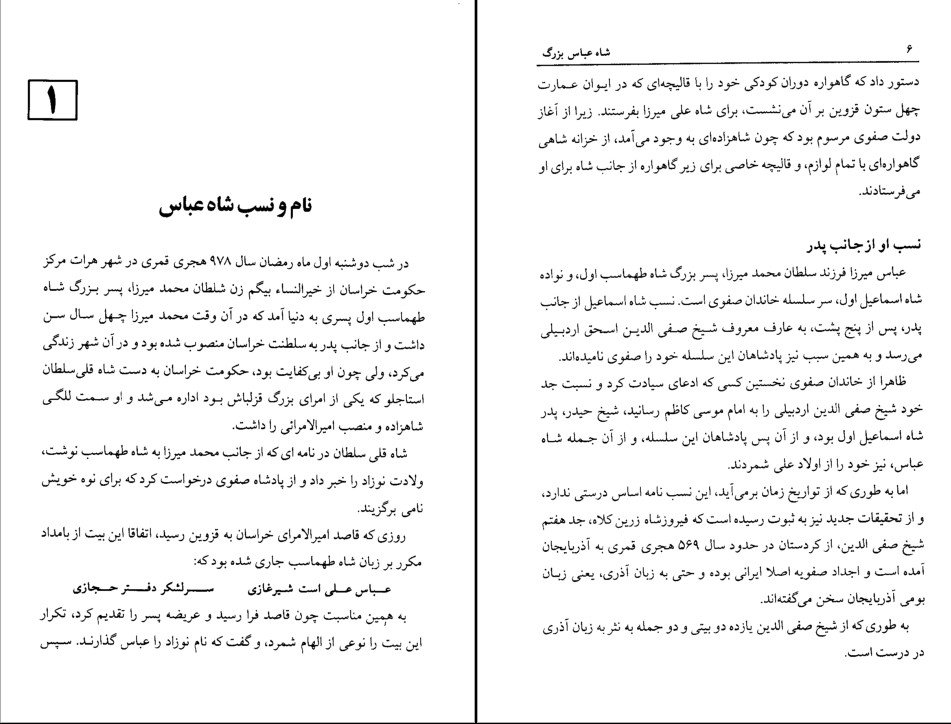 ۱
نام و نسب شاه عباس
در شب دوشنبه اول ماه رمضان سال ۹۷۸ هجری قمری در شهر هرات مرکز
حکومت خراسان از خیرالنساء بیگم زن شلطان محمد میرزا، پسر بزرگ شاه
طهماسب اول پسری به دنیا آمد که در آن وقت محمد میرزا چهل سال سن
داشت و از جانب پدر به سلطنت خراسان منصوب شده بود و در آن شهر زندگی
می‌کرد، ولی چون او بی‌کفایت بود، حکومت خراسان به دست شاه قلی‌سلطان
استاجلو که یکی از امرای بزرگ قزلباش بود اداره می‌شد و او سمت للگی
شاهزاده و منصب امیرالامرائی را داشت.
شاه قلی سلطان در نامه ای که از جانب محمد میرزا به شاه طهماسب نوشت،
ولادت نوزاد را خبر داد و از پادشاه صفوی درخواست کرد که برای نوه خویش
نامی برگزیند.
روزی که قاصد امیرالامرای خراسان به قزوین رسید، اتفاقا این بیت از بامداد
مکرر بر زبان شاه طهماسب جاری شده بود که:
عباس علی است شیرغازی سرلشکر دفتر حجازی
به همین مناسبت چون قاصد فرا رسید و عریضه پسر را تقدیم کرد، تکرار
این بیت را نوعی از الهام شمرد، و گفت که نام نوزاد را عباس گذارند. سپس
۶ شاه عباس بزرگ
دستور داد که گاهواره دوران کودکی خود را با قالیچه‌ای که در ایوان عمارت
چهل ستون قزوین بر آن می‌نشست، برای شاه علی میرزا بفرستند. زیرا از آغاز
دولت صفوی مرسوم بود که چون شاهزاده‌ای به وجود می‌آمد، از خزانه شاهی
گاهواره‌ای با تمام لوازم، و قالیچه خاصی برای زیر گاهواره از جانب شاه برای او
می‌فرستادند.
نسب او از جانب پدر
عباس میرزا فرزند سلطان محمد میرزا، پسر بزرگ شاه طهماسب اول، و نواده
شاه اسماعیل اول، سر سلسله خاندان صفوی است. نسب شاه اسماعیل از جانب
پدر، پس از پنج پشت، به عارف معروف شیخ صفی الدین اسحق اردبیلی
می‌رسد و به همین سبب نیز پادشاهان این سلسله خود را صفوی نامیده‌اند.
ظاهرا از خاندان صفوی نخستین کسی که ادعای سیادت کرد و نسبت جد
خود شیخ صفی الدین اردبیلی را به امام موسی کاظم رسانید، شیخ حیدر، پدر
شاه اسماعیل اول بود، و از آن پس پادشاهان این سلسله، و از آن جمله شاه
عباس، نیز خود را از اولاد علی شمردند.
اما به طوری که از تواریخ زمان برمی‌آید، این نسب نامه اساس درستی ندارد،
و از تحقیقات جدید نیز به ثبوت رسیده است که فیروزشاه زرین کلاه، جد هفتم
شیخ صفی الدین، از کردستان در حدود سال ۵۶۹ هجری قمری به آذربایجان
آمده است و اجداد صفویه اصلا ایرانی بوده و حتی به زبان آذری، یعنی زبان
بومی آذربایجان سخن می‌گفته‌اند.
به طوری که از شیخ صفی الدین یازده دو بیتی و دو جمله به نثر به زبان آذری
در درست است.